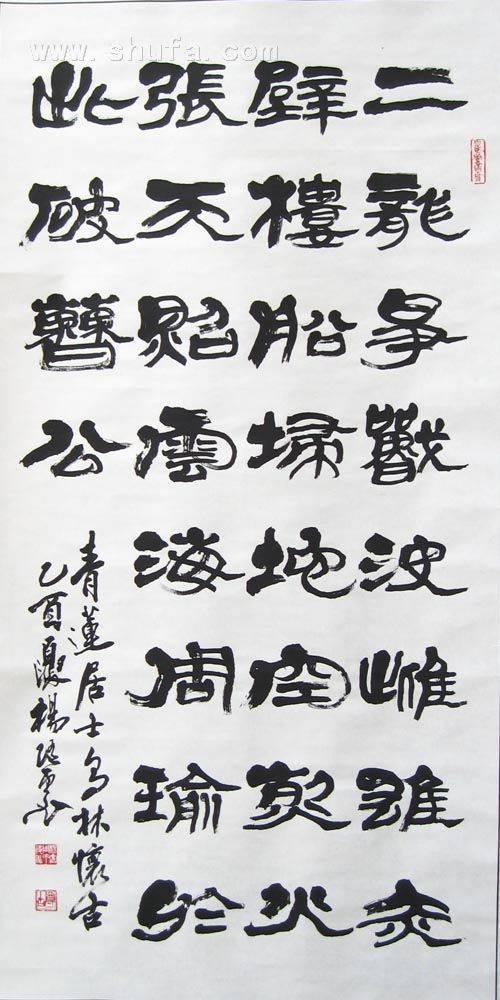 www.shufa.com
二龍爭戰決雌雄赤
壁樓船掃地空烈火
張天照雲海周瑜於
此破曹公
青蓮居士烏林懷古
乙酉夏楊